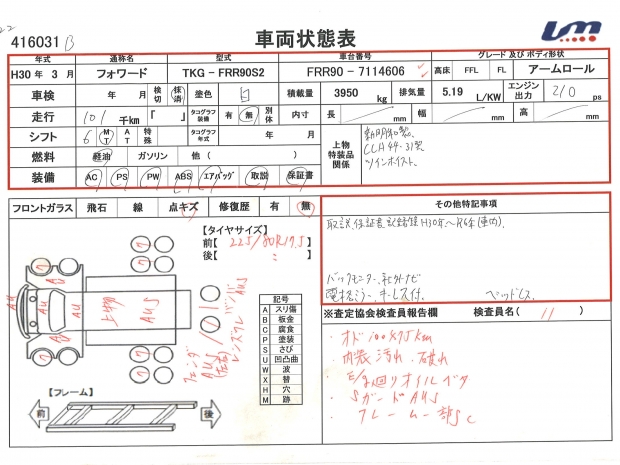 416031 B
車両状態表
年式 通称名 型式 車台番号 グレード 及び ボディ形状
H30 年 3 月 フォワード TKG - FRR90S2 FRR90 - 7114606 高床 FFL FL アームロール
車検 年 月 検切 抹消 塗色 白 積載量 3950 kg 排気量 5.19 L/KW エンジン出力 210 ps
走行 101 千km 『 』 タコグラフ装備 有 無 別体 内寸 長 mm 幅 mm 高 mm
シフト 6 MT AT 特殊 タコグラフ年式 年 月 上物特装品関係 新明和製
燃料 軽油 ガソリン 他 ( ) CLH44-31製
装備 AC PS PW ABS エアバッグ 取説 保証書 ツインホイスト.
フロントガラス 飛石 線 点キズ 修復歴 有 無
その他特記事項
取説、保証書、記録簿H30年~R6年(車内)
バックモニター、社外ナビ
電格ミラー、キーレス付. ベッドレス.
【タイヤサイズ】
前【 225/80R17.5 】
後【 〃 】
AU
AU
AU
上物
AUS
記号
A スリ傷
B 板金
C 腐食
P 塗装
S さび
U 凹凸曲
W 波
X 替
H 穴
M 跡
【フレーム】
前
後
※査定協会検査員報告欄 検査員名 ( 11 )
・オド100875km
・内装汚れ・破れ
・E/g廻りオイルベタ
・SガードAUS
・フレーム一部SC